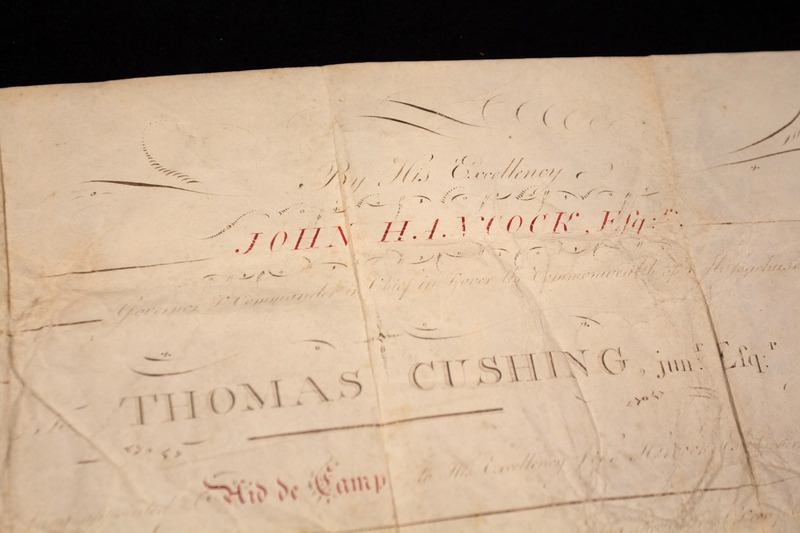 By His Excellency
JOHN HANCOCK, Esq:r.
Governor & Commander in Chief in & over the Commonwealth of
THOMAS CUSHING, junr. Esq:r
Aid de Camp to His Excellency